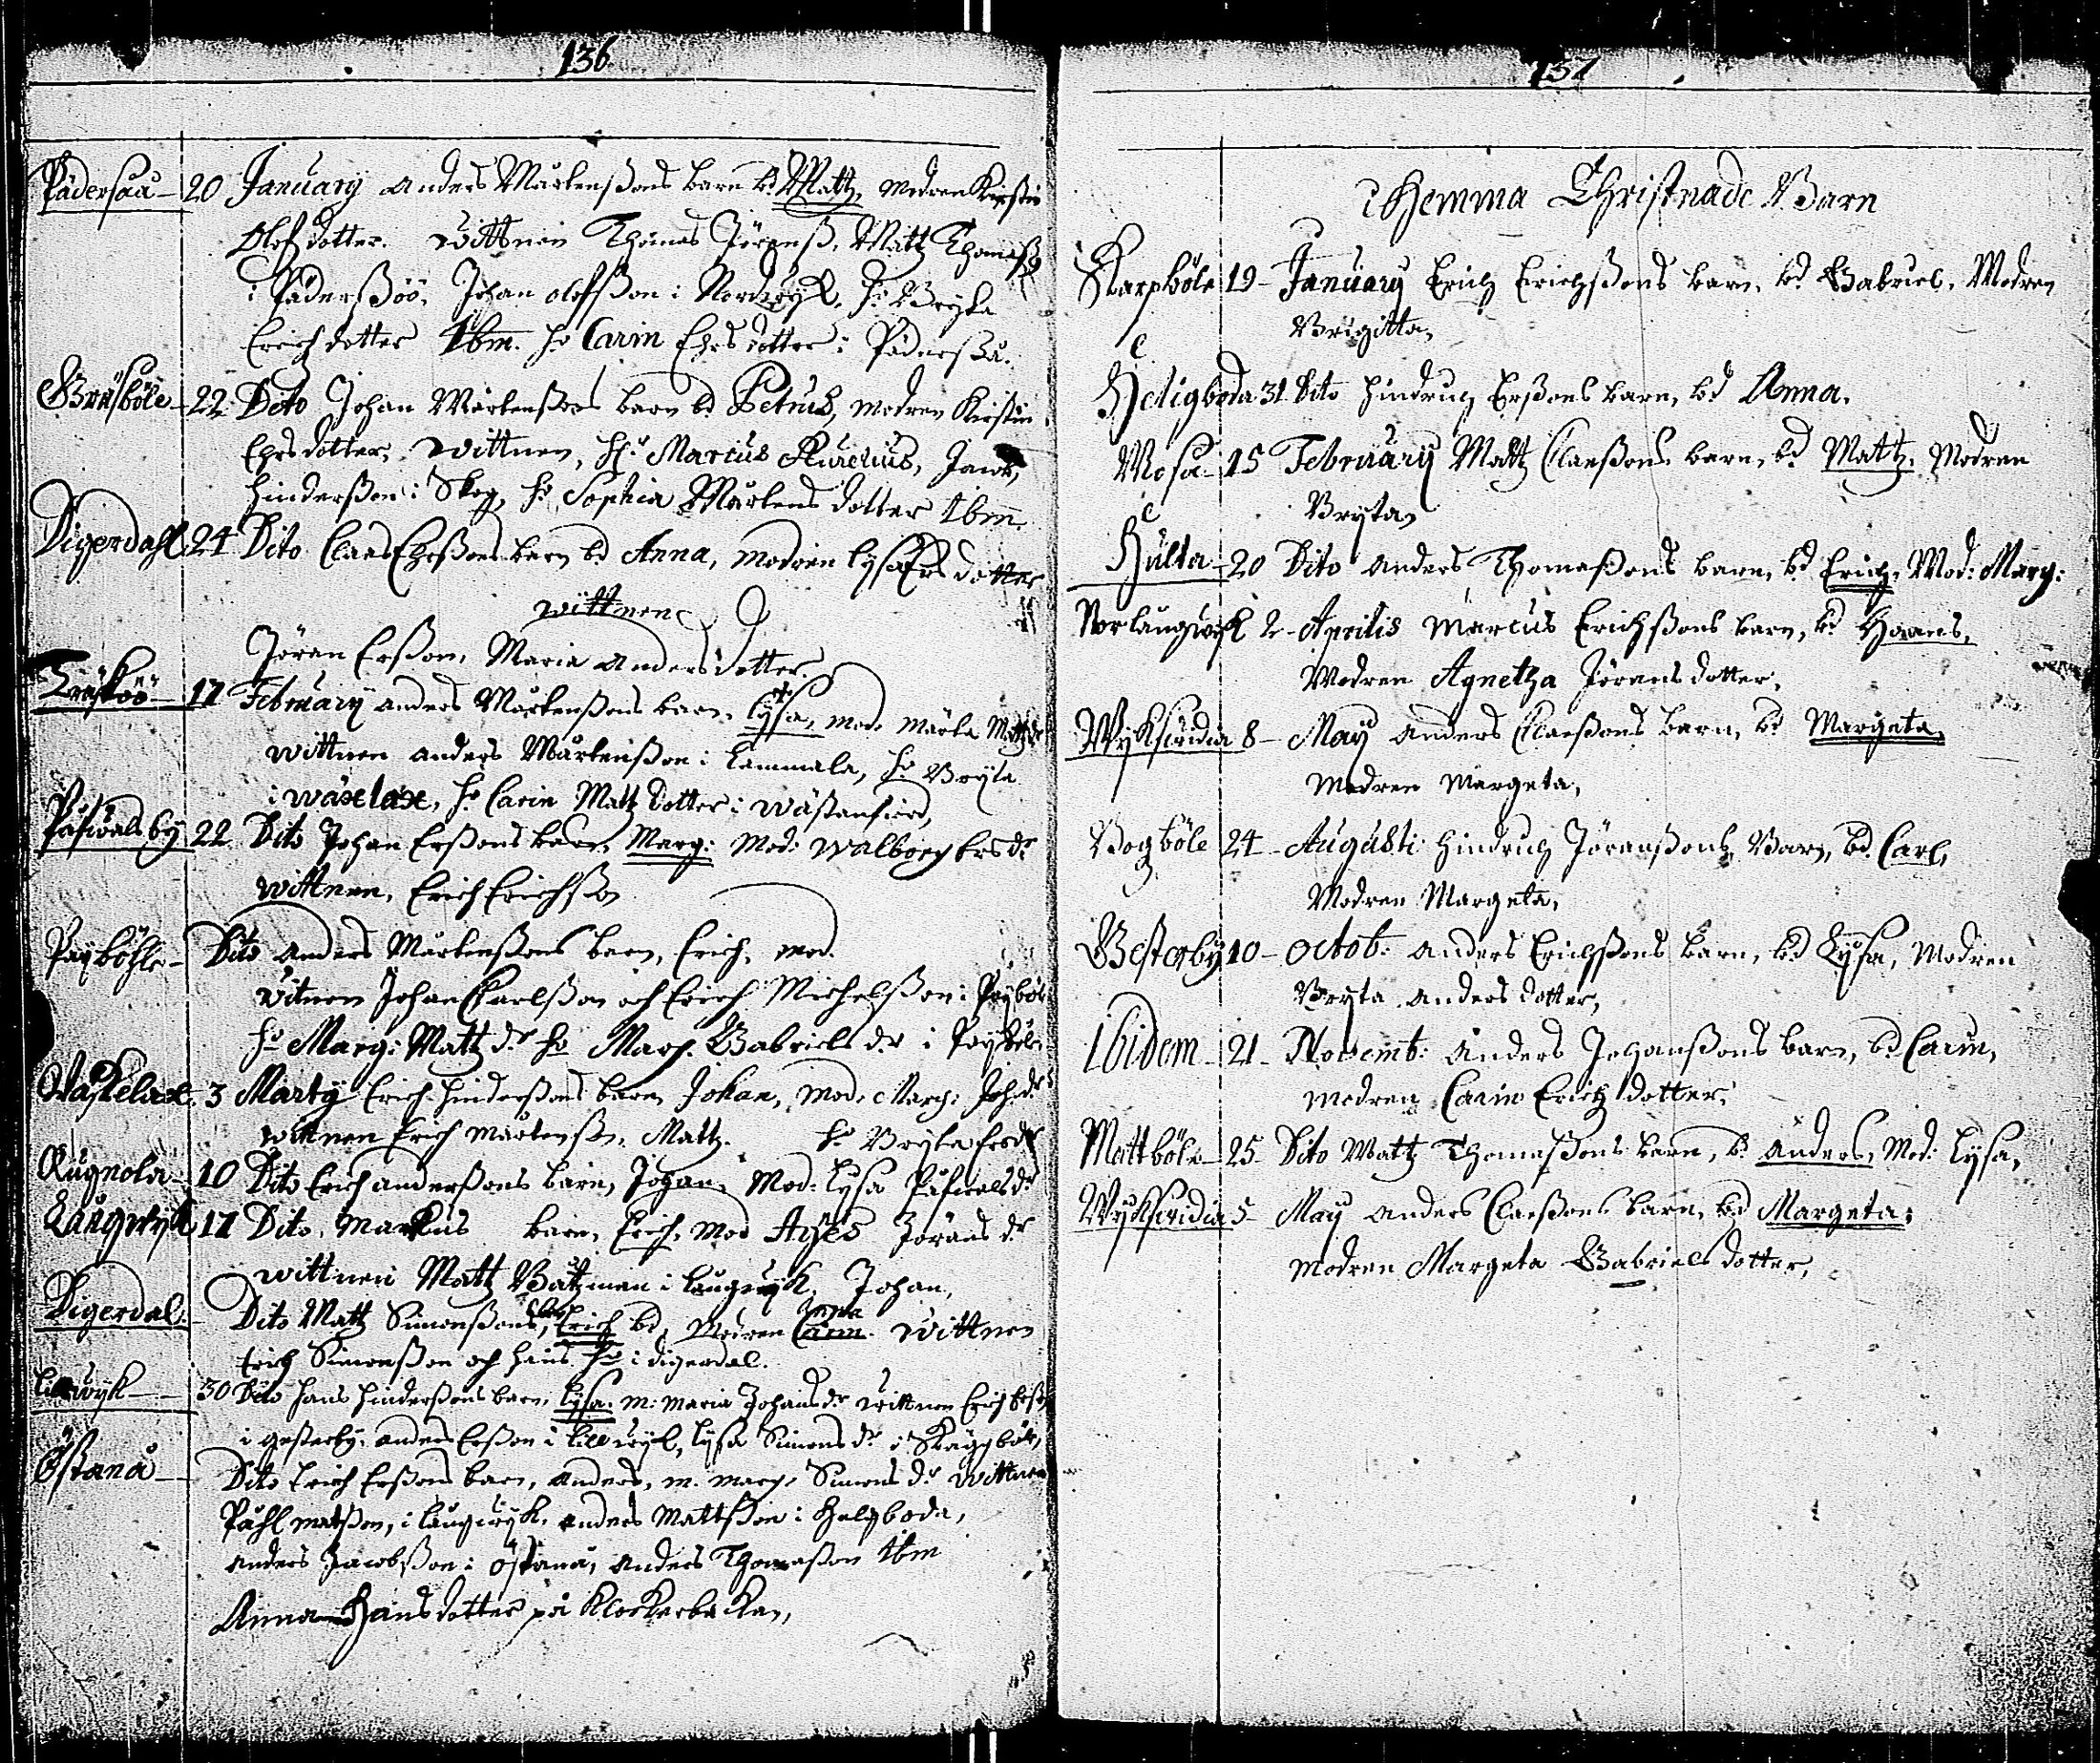 136
Pädersåå - 20 January Anders Mårtenßons barn bd Mattz, modren Kirstin
Olofs dotter. Wittnen Thomas Jörenß. Matt Thomaß
i Päderßöö, Johan olofßon i Nordwyk, ho Bryta
Erich dotter Ibm. ho Carin Ehrs dotter i Päderßå.
Bräsböle - 22 Dito Johan Mårtenßons barn bd Petrus, modren Kirstin
Ehrs dotter, Wittnen, Hr Marcus Aurelius,
Hinderßon i Skog, ho Sophia Mårtens dotter Ibm.
Digerdahl 24 Dito Claes Ehrßons barn bd Anna, modren Lysa Ers dotter
wittnen
Jöran Erßon, Maria Anders dotter.
17 February Anders Mårtenßons barn, Lysa, mod. Märta
wittnen Anders Mårtenßon i Lammala, ho Bryta
i wäxelax, ho Carin Matz dotter i Wästanfierd,
Påfwals by 22 Dito Johan Erßons barn, Marg: Mod: Walborg Ers dr
wittnen, Erich Erichßo
Payböhle - Dito Anders Mårtenßons barn, Erich, mod.
Vitnen Johan Charlßon och Erich Michelßon i
ho Marg: Matz dr ho Marg. Gabriels dr i
3 Marty Erich Hinderßons barn Johan, mod. Marg: Joh: dr
wittnen Erich Mårtenß. Matz. ho Bryta Ers dr
Rugnola - 10 Dito Erich Anderßons barn, Johan, Mod: Lysa Påfwels dr
Långwyk 17 Dito, Markus barn, Erich, mod Ages Jörans dr
wittnen Matz Båtzman i Långwyk, Johan,
Digerdal. Dito Matz Simonßons, Erich bd, Modren Carin Anna. Wittnen
Erich Simonßon och hans ho i digerdal.
Lillwyk - 30 Dito Hans Hinderßons barn, Lysa. m: Maria Johans dr wittnen Erich Erß
i gesterby, Anders Erßon i Lillwyk, Lysa Simons dr i Skäggböle,
Östanå - Dito Erich Erßons barn, Anders, m. Marg, Simons dr Wittnen
Påhl Matßon, i Långwyk, Anders Mattßon i Helgboda,
Anders Jacobßon i Östanå, Anders Thomaßon Ibm
Anna Hans dotter på Klockerbacken,
137
Hemma Christnade Barn
Skarpböle 19 - January Erich Erichßons barn, bd Gabriel, Modren
Brigitta,
Heligboda 31 Dito Hindrich Erßons barn, bd Anna.
Mosa - 15 February Matz Claeßons barn, bd Mattz, Modren
Bryta,
Hulta - 20 Dito Anders Thomaßons barn, bd Erich, Mod: Marg:
Norlångwyk 2 - Aprilis Marcus Erichßons barn, bd Haans,
Modren Agnetha Jörens dotter,
Wyksuidia 8 - May Anders Claeßons barn, bd Margeta,
Modren Margeta,
Bogböle 24 - Augusti Hindrich Jöranßons Barn, bd. Carl,
Modren Margeta,
Gesterby 10 - Octob: Anders Erichßons barn, bd Lysa, Modren
Bryta Anders dotter,
Ibidem - 21 - Novemb: Anders Johanßons barn, bd Carin,
Modren Carin Erichz dotter,
Mattböle - 25 Dito Matz Thomaßons barn, bd Anders, Mod: Lysa,
Wyksuidia 5 - May Anders Claeßons barn, bd Margeta:
Modren Margeta Gabriels dotter,